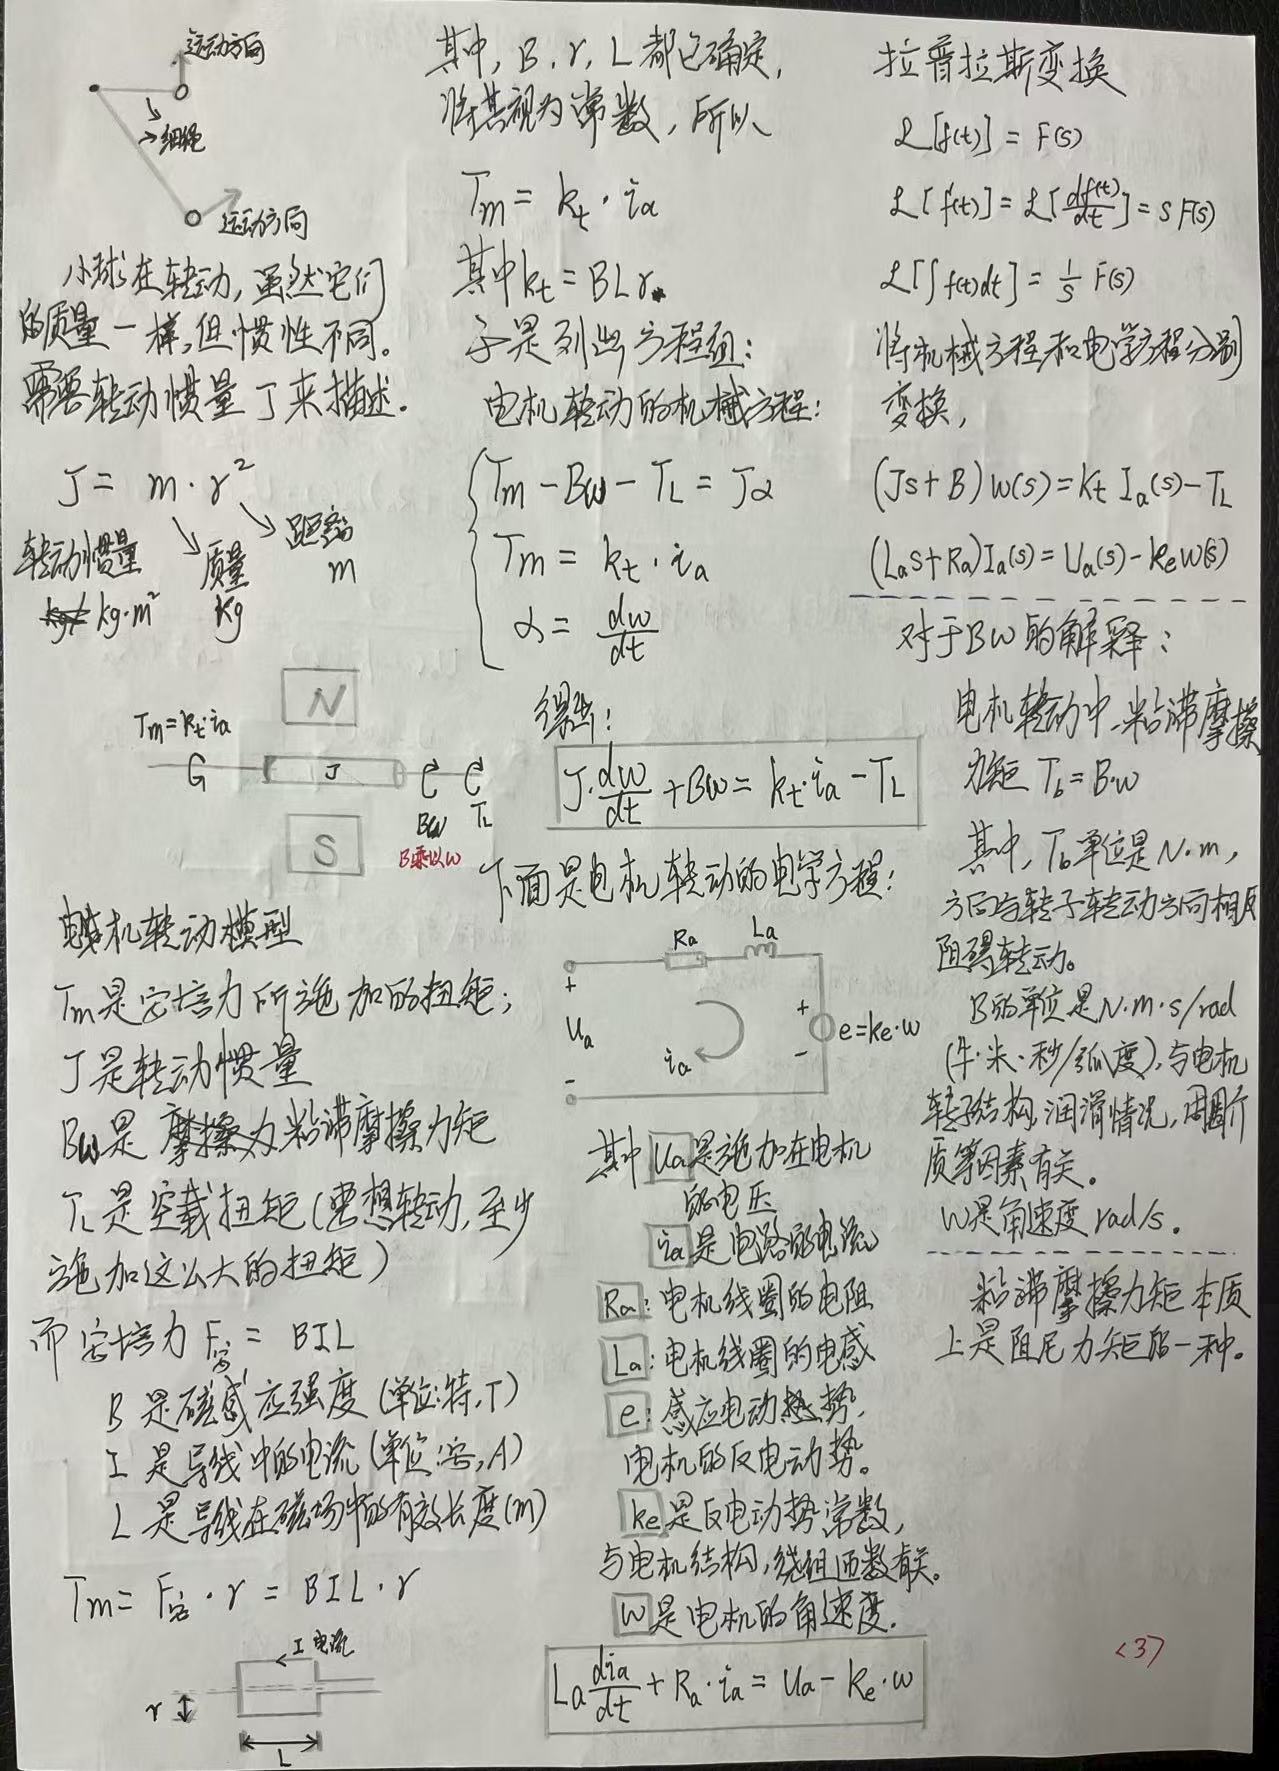 运动方向
→细绳
运动方向
小球在转动，虽然它们
的质量一样，但惯性不同。
需要转动惯量J来描述.
J = m · r²
转动惯量
kg·m²
质量
kg
距离
m
N
Tm=kt·ia
J
Bω
TL
B乘以ω
S
电机转动模型
Tm是安培力所施加的扭矩;
J是转动惯量
Bω是 粘滞摩擦力矩
TL是空载扭矩(要想转动,至少
施加这么大的扭矩)
而安培力F安 = BIL
B 是磁感应强度 (单位:特,T)
I 是导线中的电流 (单位:安,A)
L 是导线在磁场中的有效长度(m)
Tm= F安 · r = BIL · r
I 电流
r
L
其中, B, r, L 都已确定,
将其视为常数, 所以
Tm = kt · ia
其中kt = BLr.
于是列出方程组:
电机转动的机械方程:
Tm - Bω - TL = Jα
Tm = kt · ia
α = dω/dt
得出:
J·dω/dt + Bω = kt·ia - TL
下面是电机转动的电学方程:
Ra
La
+
Ua
-
ia
+
-
e=ke·ω
其中Ua是施加在电机
的电压
ia是电路的电流
Ra: 电机线圈的电阻
La: 电机线圈的电感
e: 感应电动势,
电机的反电动势。
ke是反电动势常数,
与电机结构,绕组匝数有关.
ω是电机的角速度.
La dia/dt + Ra·ia = Ua - ke·ω
拉普拉斯变换
ℒ[f(t)] = F(s)
ℒ[f(t)] = ℒ[df(t)/dt] = s F(s)
ℒ[∫f(t)dt] = 1/s F(s)
将机械方程和电学方程分别
变换,
(Js+B)ω(s)=kt Ia(s)-TL
(Las+Ra)Ia(s)=Ua(s)-keω(s)
对于Bω的解释:
电机转动中,粘滞摩擦
力矩 Tb=B·ω
其中, Tb单位是N·m,
方向与转子转动方向相反
阻碍转动。
B的单位是N·m·s/rad
(牛·米·秒/弧度),与电机
转子结构,润滑情况,周围介
质等因素有关.
ω是角速度 rad/s.
粘滞摩擦力矩本质
上是阻尼力矩的一种。
<3>